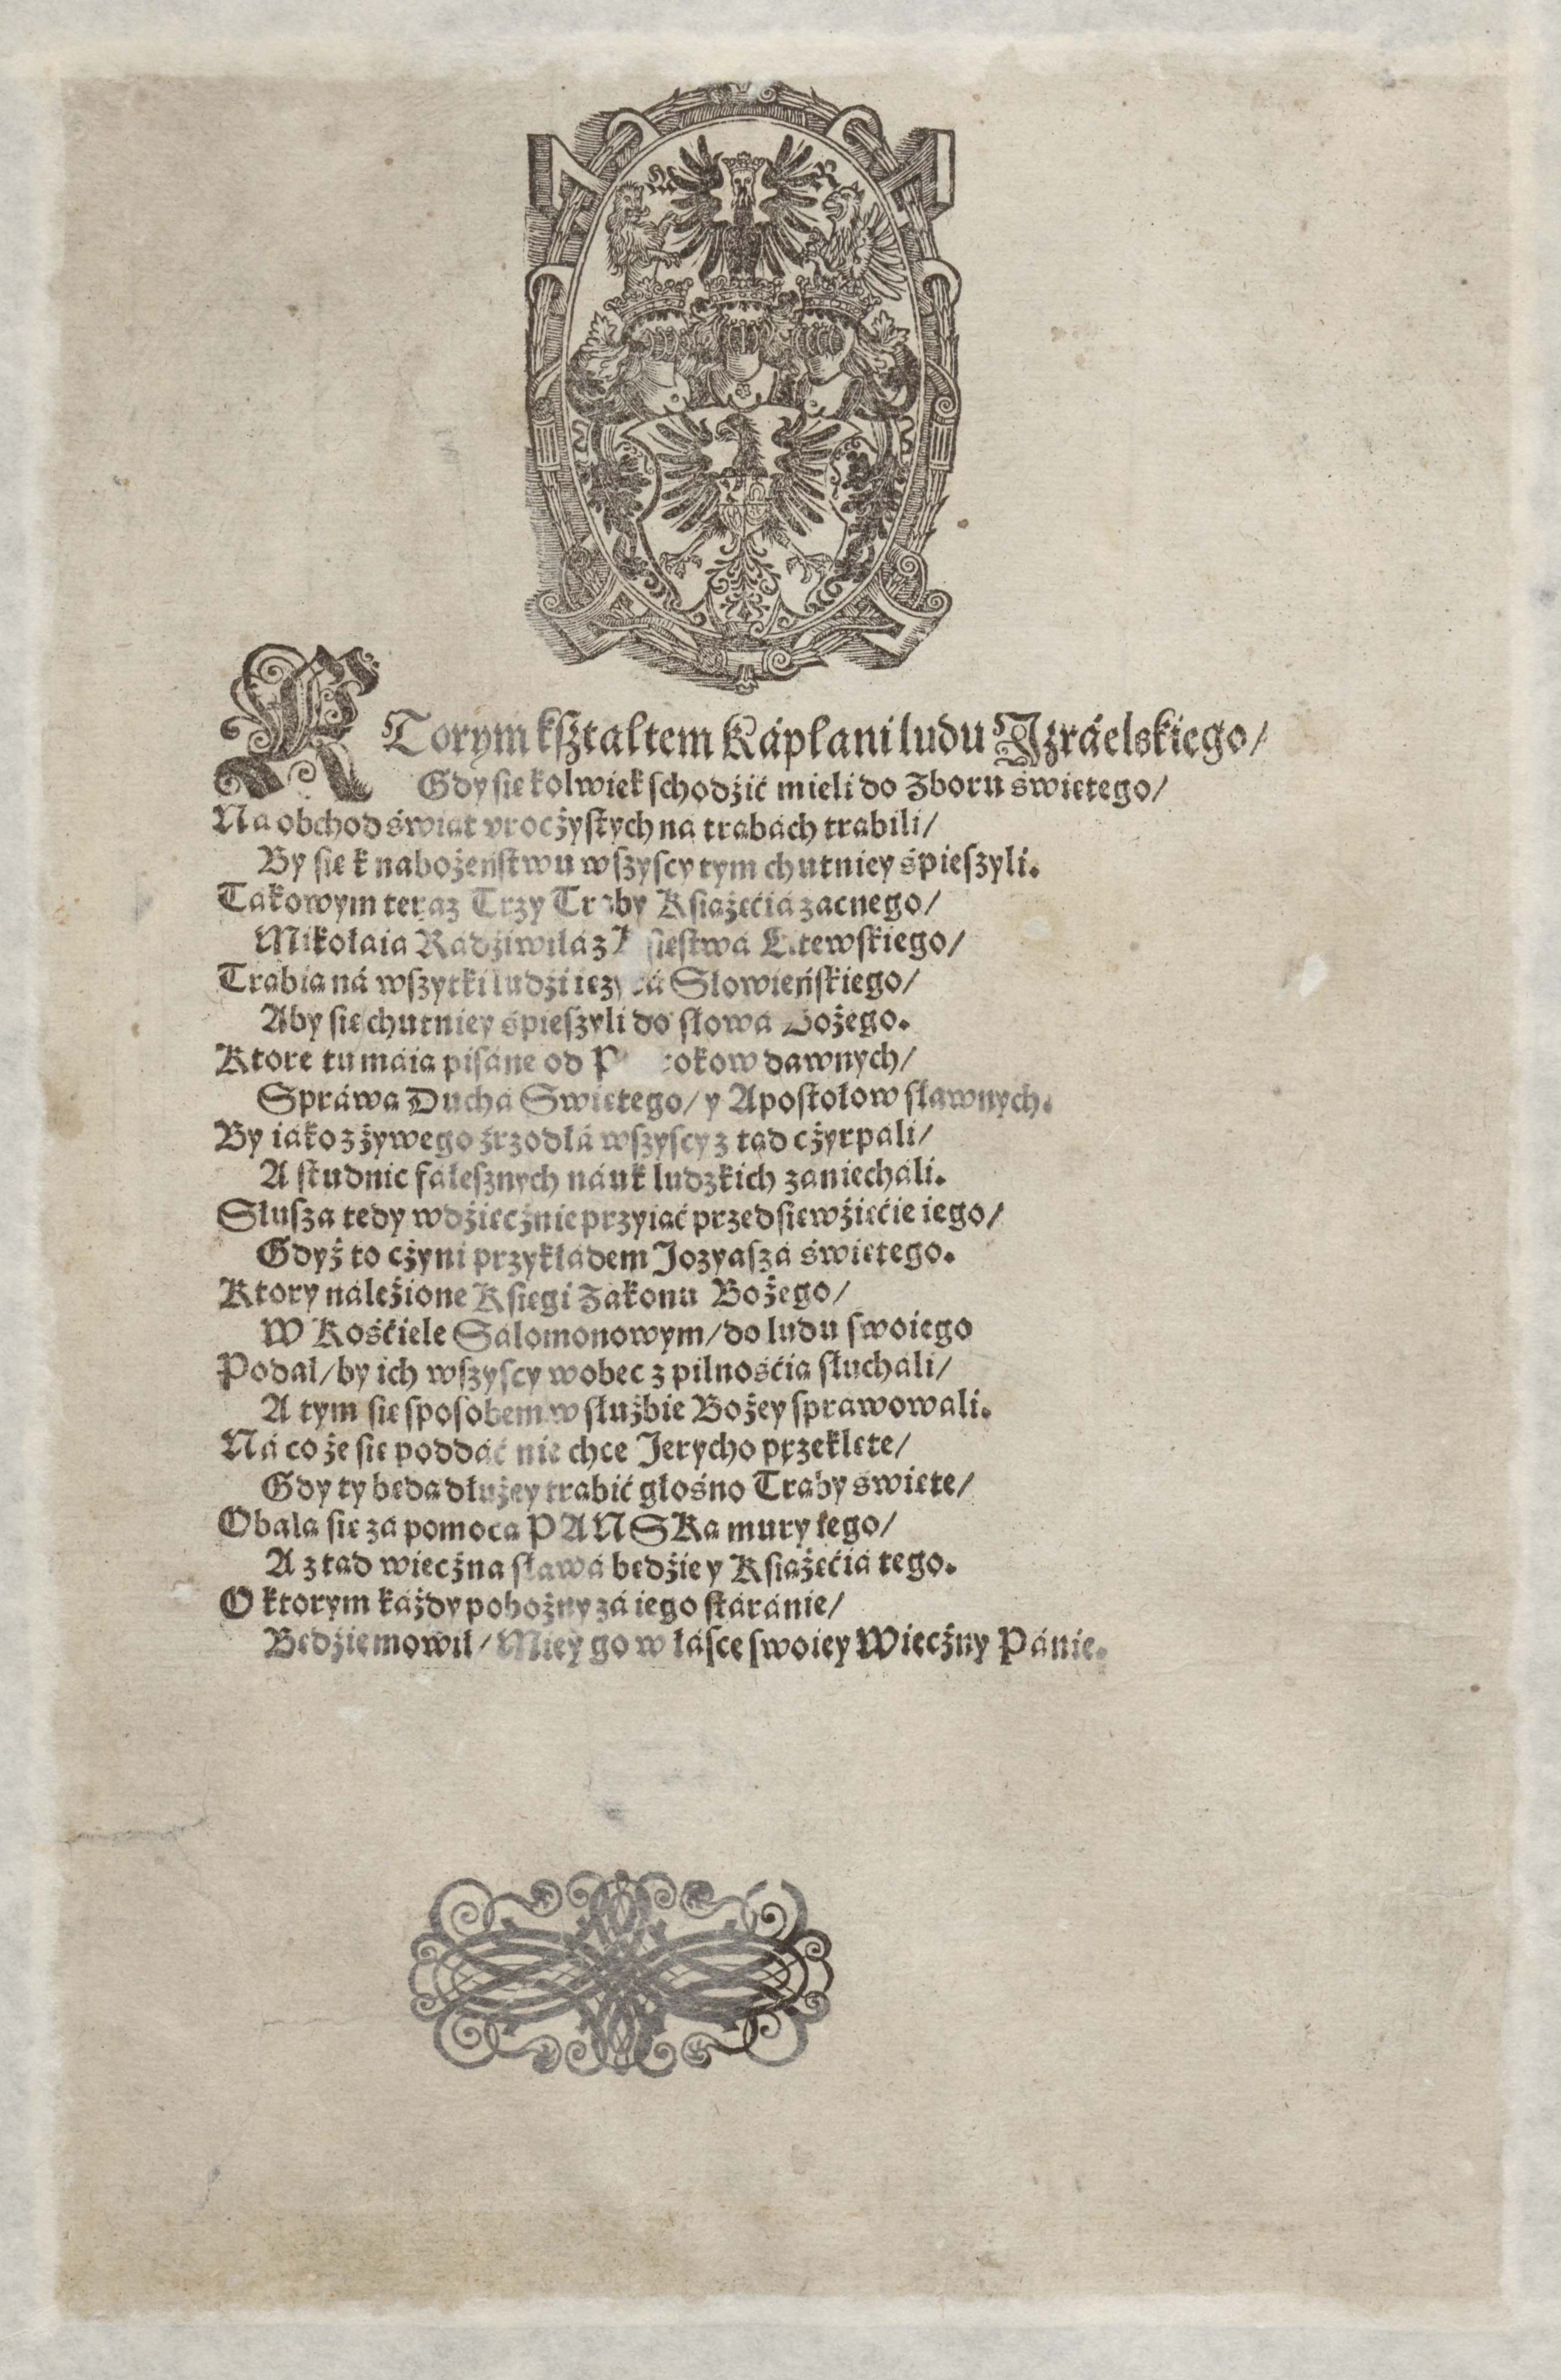 M R
KTorym kſztaltem Káplani ludu Jzráelskiego/
Gdy sie kolwiek ſchodźić mieli do Zboru świetego/
Na obchod świat vrocżyſtych na trabách trabili/
By sie k nabożeńſtwu wſzyſcy tym chutniey śpieſzyli.
Takowym teraz Trzy Traby Kśiażećiá zacnego/
Mikołaia Rádźiwiłá z Litewſkiego/
Trabia ná wſzytki ludźi Slowieńſkiego/
Aby sie chutniey śpieſzyli do słowa Bożego.
Ktore tu máia piſáne od dawnych/
Spráwa Duchá Swietego/ y Apoſtołow sławnych.
By iáko z żywego źrzodłá wſzyſcy z tad cżyrpáli/
A ſtudnic fáłeſznych náuk ludzkich zániecháli.
Słuſza tedy wdźiecżnie przyiáć przedsiewźiećie iego/
Gdyż to cżyni przykładem Jozyaſzá świetego.
Ktory náleźione Kśiegi Zakonu Bożego/
W Kośćiele Sálomonowym/ do ludu ſwoiego
Podał/ by ich wſzyſcy wobec z pilnośćia słucháli/
A tym sie ſpoſobem w służbie Bożey ſprawowali.
Ná co że sie poddáć nie chce Jerycho przeklete/
Gdy ty beda dłużey trabić głośno Traby świete/
Obala sie za pomoca PANSKa mury tego/
A z tad wiecżna sławá bedźie y Kśiażećiá tego.
O ktorym káżdy pobożny zá iego ſtáránie/
Bedźie mowił/ Miey go w łáſce ſwoiey Wiecżny Pánie.